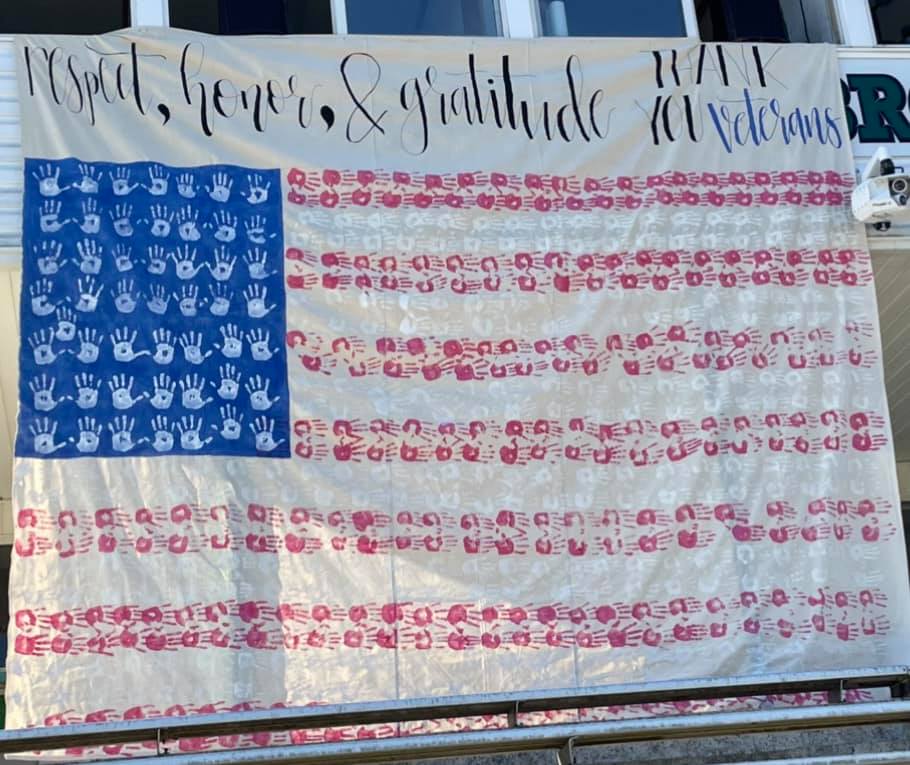 respect, honor, & gratitude
THANK
YOU veterans
BR